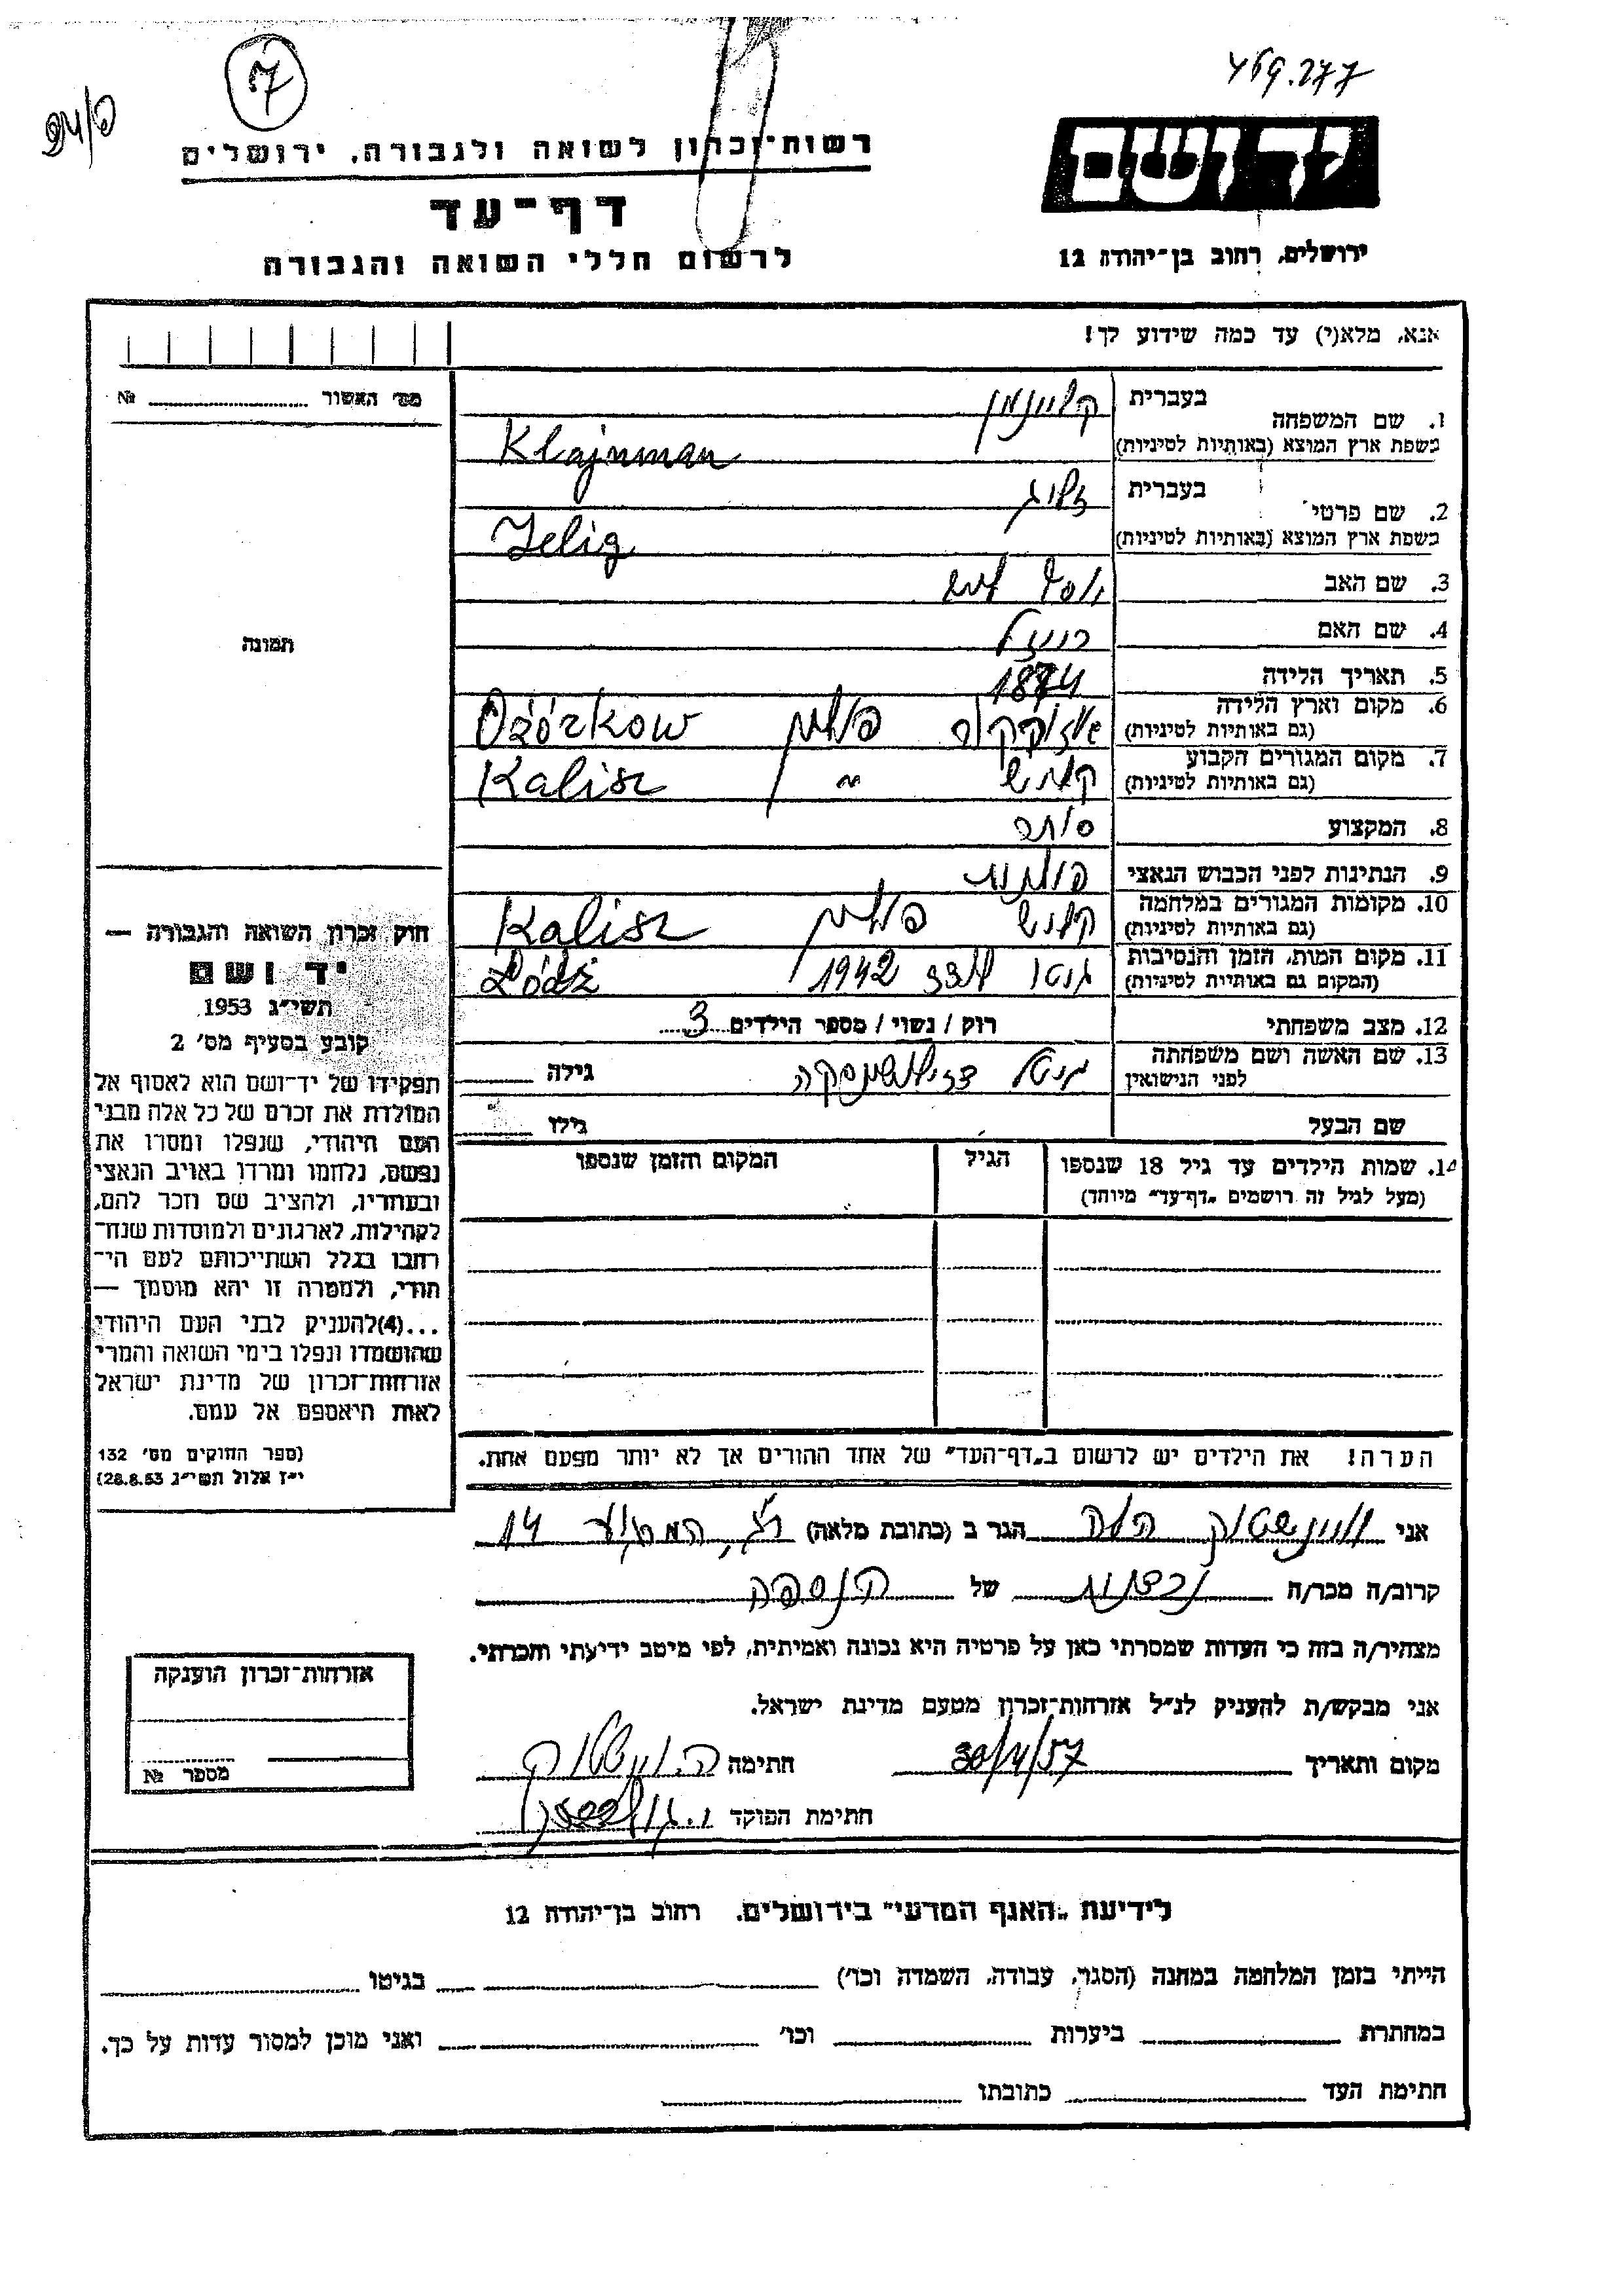 469.277
7
יד ושם
רשות־זכרון לשואה ולגבורה, ירושלים
דף־עד
לרשום חללי השואה והגבורה
ירושלים, רחוב בן־יהודה 12
אנא, מלא(י) עד כמה שידוע לך!
מס׳ האשור № 
1. שם המשפחה בעברית קליינמן
בשפת ארץ המוצא (באותיות לטיניות) Klajnman
2. שם פרטי בעברית זליג
בשפת ארץ המוצא (באותיות לטיניות) Zelig
3. שם האב יוסף
4. שם האם
5. תאריך הלידה 1874
6. מקום וארץ הלידה פולין Ozórkow
(גם באותיות לטיניות)
7. מקום המגורים הקבוע קאליש " Kalisz
(גם באותיות לטיניות)
8. המקצוע סוחר
9. הנתינות לפני הכבוש הנאצי פולנית
10. מקומות המגורים במלחמה קליש פולין Kalisz
(גם באותיות לטיניות)
11. מקום המות, הזמן והנסיבות גיטו לודז 1942 Łódź
(המקום גם באותיות לטיניות)
12. מצב משפחתי רוק / נשוי / מספר הילדים 3
13. שם האשה ושם משפחתה לפני הנישואין גילה
שם הבעל גילו
14. שמות הילדים עד גיל 18 שנספו הגיל המקום והזמן שנספו
(מעל לגיל זה רושמים „דף־עד" מיוחד)
הערה! את הילדים יש לרשום ב„דף־העד" של אחד ההורים אך לא יותר מפעם אחת.
תמונה
חוק זכרון השואה והגבורה —
יד ושם
תשי״ג 1953
קובע בסעיף מס׳ 2
תפקידו של יד־ושם הוא לאסוף אל
המולדת את זכרם של כל אלה מבני
העם היהודי, שנפלו ומסרו את
נפשם, נלחמו ומרדו באויב הנאצי
ובעוזריו, ולהציב שם וזכר להם,
לקהילות, לארגונים ולמוסדות שנח־
רחבו בגלל השתייכותם לעם הי־
הודי, ולמטרה זו יהא מוסמך —
...(4)להעניק לבני העם היהודי
שהושמדו ונפלו בימי השואה והמרי
אזרחות־זכרון של מדינת ישראל
לאות היאספם אל עמם.
(ספר החוקים מס׳ 132
י״ז אלול תשי״ג 28.8.53)
אני ויינשטוק הלה הגר ב (כתובת מלאה) ר״ג, 14
קרוב/ה מכר/ה נכדתו של הנספה
מצהיר/ה בזה כי העדות שמסרתי כאן על פרטיה היא נכונה ואמיתית, לפי מיטב ידיעתי והכרתי.
אני מבקש/ת להעניק לנ״ל אזרחות־זכרון מטעם מדינת ישראל.
מקום ותאריך 30/4/57 חתימה
חתימת הפוקד
אזרחות־זכרון הוענקה
מספר №
לידיעת „האגף המדעי" בירושלים, רחוב בן־יהודה 12
הייתי בזמן המלחמה במחנה (הסגר, עבודה, השמדה וכו׳) בגיטו
במחתרת ביערות וכו׳ ואני מוכן למסור עדות על כך.
חתימת העד כתובתו